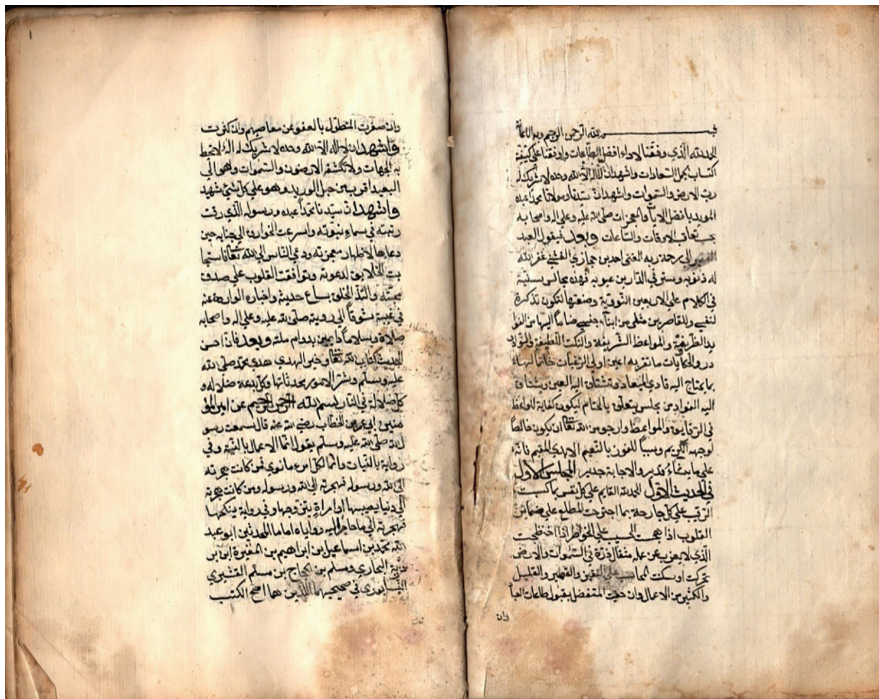 بسم الله الرحمن الرحيم وبه الاعانة
الحمد لله الذي وفقنا لاداء افضل الطاعات واوقفنا على كيفية
اكتساب اكمل السعادات واشهد ان لا اله الا الله وحده لا شريك له
رب الارض والسموات واشهد ان سيدنا ومولانا محمدا عبده
المؤيد بافضل الايات والمعجزات صلى الله عليه وعلى اله واصحابه
بحسب تعاقب الاوقات والساعات وبعد فيقول العبد
الفقير الى رحمة ربه الغني احمد بن حجازي الفشني غفر الله
له ذنوبه وستر في الدارين عيوبه فهذه مجالس سنية
في الكلام على الاربعين النووية وضعتها لتكون تذكرة
لنفسي وللقاصرين مثلي من ابناء جنسي ضاما اليها من الفوا
يد الظريفة والمواعظ الشريفة والنكت اللطيفة والنوا
در والحكايات ما تقر به اعين اولي الرغبات
ما يحتاج اليه قاري الميعاد وتشتاق اليه العين ويشتاق
اليه الفواد من مجلس يتعلق بالختام ليكون كفاية للواعظ
في الرقايق والمواعظ وارجو من الله تعالى ان يكون خالصا
لوجهه الكريم وسببا للفوز بالنعيم الابدي المقيم فانه
على ما يشاء قدير وبالاجابة جدير المجلس الاول
في الحديث الاول الحمد لله القايم على كل نفس بما كسبت
الرقيب على كل جارحة بما اجترحت المطلع على ضماير
القلوب اذا هجست الحسيب على الخواطر اذا اختلجت
الذي لا يعزب عن علمه مثقال ذرة في السموات والارض
تحركت او سكنت المحاسب على النقير والقطمير والقليل
والكثير من الاعمال وان خفيت المتفضل بقبول طاعات العبا
وان
وان صغرت المتطول بالعفو عن معاصيهم وان كثرت
واشهد ان لا اله الا الله وحده لا شريك له اله لا تحيط
به الجهات ولا تكتنفه الارضون والسموات وهو الى
البعيد اقرب من حبل الوريد وهو على كل شيء شهيد
واشهد ان سيدنا محمدا عبده ورسوله الذي رقت
رتبته في سماء نبوته واسرعت الخوارق الى جنابه حين
دعاها لاظهار معجزته ودعى الناس الى الله تعالى فاستجا
بت الخلايق لدعوته وتوافقت القلوب على صدق
محبته والتذ الخلق بسماع حديثه واخباره الواردة عنه
في غيبته شوقا الى رؤيته صلى الله عليه وعلى اله واصحابه
صلاة وسلاما دايمين بدوام ملته وبعد فان احسن
الحديث كتاب الله تعالى وخير الهدي هدي محمد صلى الله
عليه وسلم وشر الامور محدثاتها وكل بدعة ضلالة و
كل ضلالة في النار بسم الله الرحمن الرحيم عن امير المؤ
منين ابي عمر بن الخطاب رضي الله عنه قال سمعت رسو
ل الله صلى الله عليه وسلم يقول انما الاعمال بالنية وفي
رواية بالنيات وانما لكل امرء ما نوى فمن كانت هجرته
الى الله ورسوله فهجرته الى الله ورسوله ومن كانت هجرته
الى دنيا يصيبها او امراة يتزوجها وفي رواية ينكحها
فهجرته الى ما هاجر اليه رواياه اماما المحدثين ابو عبد
الله محمد بن اسماعيل بن ابراهيم بن المغيرة ابن بر
دزبه البخاري ومسلم بن الحجاج بن مسلم القشيري
النيسابوري في صحيحيهما اللذين هما اصح الكتب